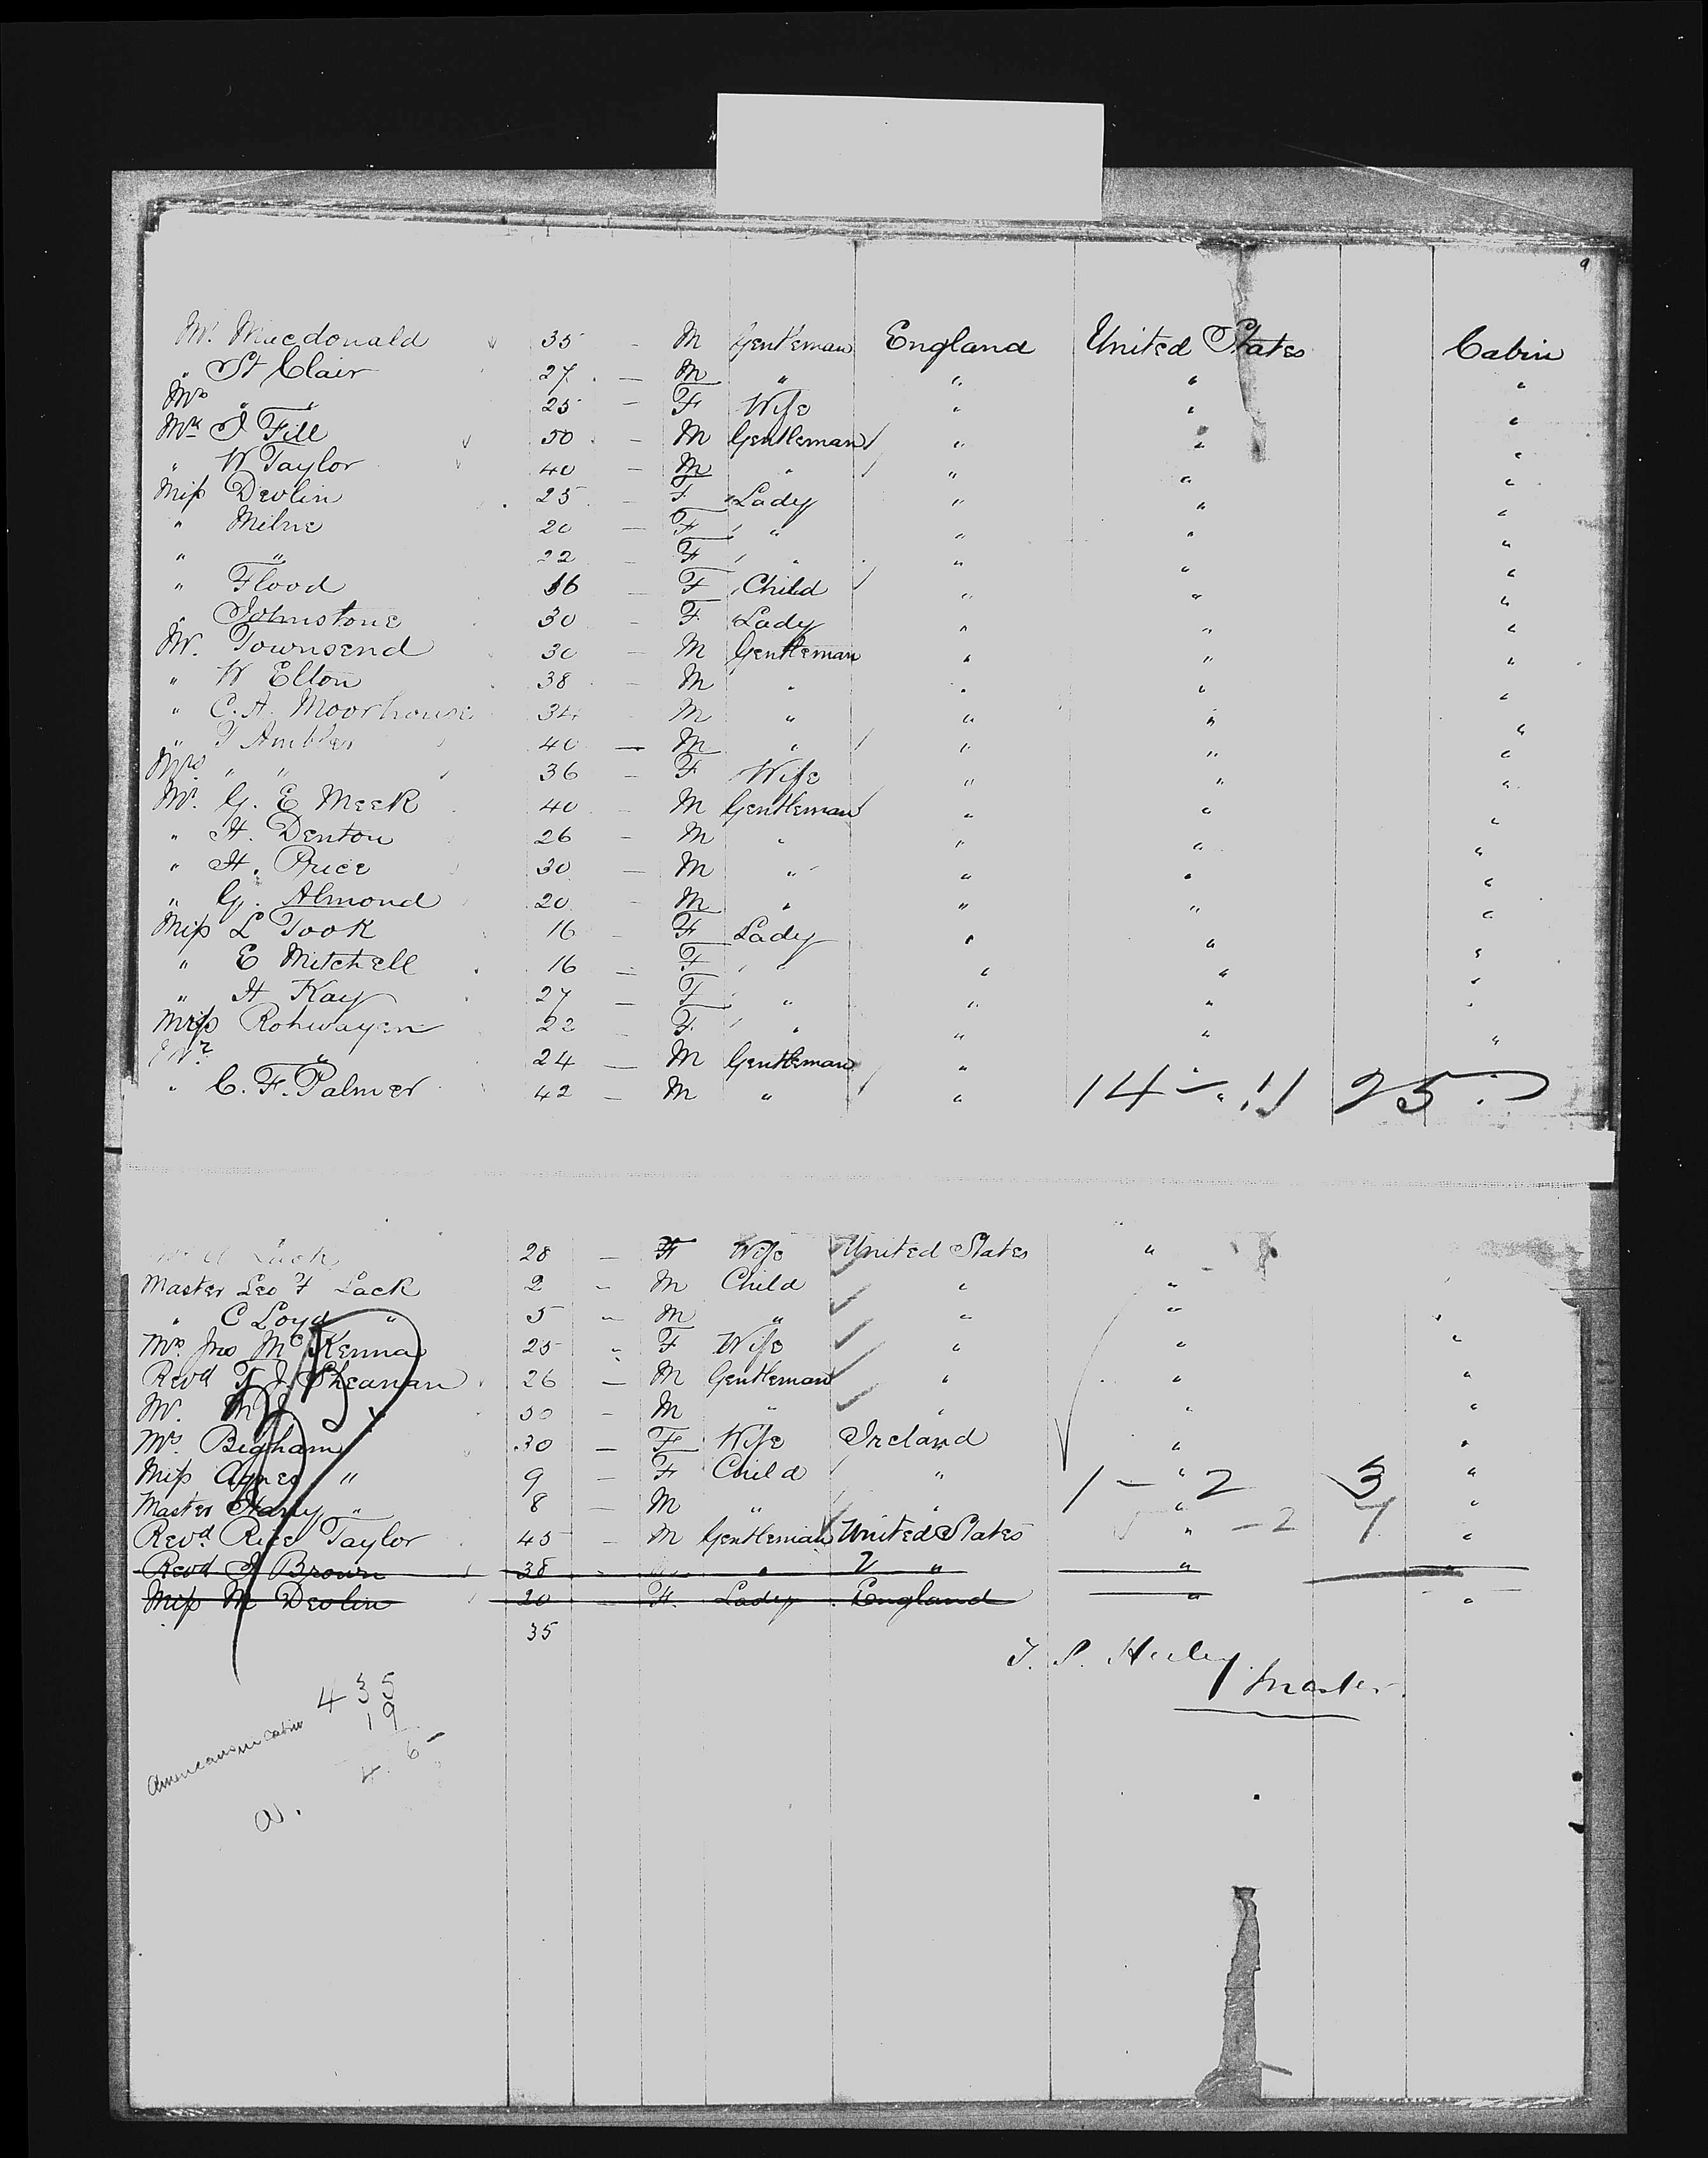 Mr. Macdonald 35 - M Gentleman England United States Cabin
" St Clair 27 - M " " " "
Mrs " " 25 - F Wife " " "
Mr J Fill 50 - M Gentleman " " "
" W Taylor 40 - M " " " "
Miss Devlin 25 - F Lady " " "
" Milne 20 - F " " " "
" " 22 - F " " " "
" Flood 16 - F Child " " "
" Johnstone 30 - F Lady " " "
Mr. Townsend 30 - M Gentleman " " "
" W Elton 38 - M " " " "
" C. A. Moorhouse 34 - M " " " "
" T Ambler 40 - M " " " "
Mrs. " " 36 - F Wife " " "
Mr. G. E Meek 40 - M Gentleman " " "
" H. Denton 26 - M " " " "
" H. Price 30 - M " " " "
" G. Almond 20 - M " " " "
Miss L Took 16 - F Lady " " "
" E Mitchell 16 - F " " " "
" H Kay 27 - F " " " "
Rohwayen 22 - F " " " "
Mr " 24 - M Gentleman " "
" C. F. Palmer 42 - M " " 14 - 11 25
Lack 28 - F Wife United States "
Master Leo F Lack 2 - M Child " "
" C Loyd " 5 " M " " " "
Mrs Jno McKenna 25 " F Wife " " "
Revd T. J. Sheanan 26 - M Gentleman " " "
Mr. M J " 30 - M " " " "
Mrs. Bigham 30 - F Wife Ireland " "
Miss Agnes " 9 - F Child " 1 - " 2 3 "
Master Harry " 8 - M " " " "
Revd. Taylor 45 - M Gentleman United States " - 2 7 "
Revd J Brown 38 - " " " "
Miss M Devlin 20 - F. Lady England " "
35
T. P. Master.
435
American in cabin 19